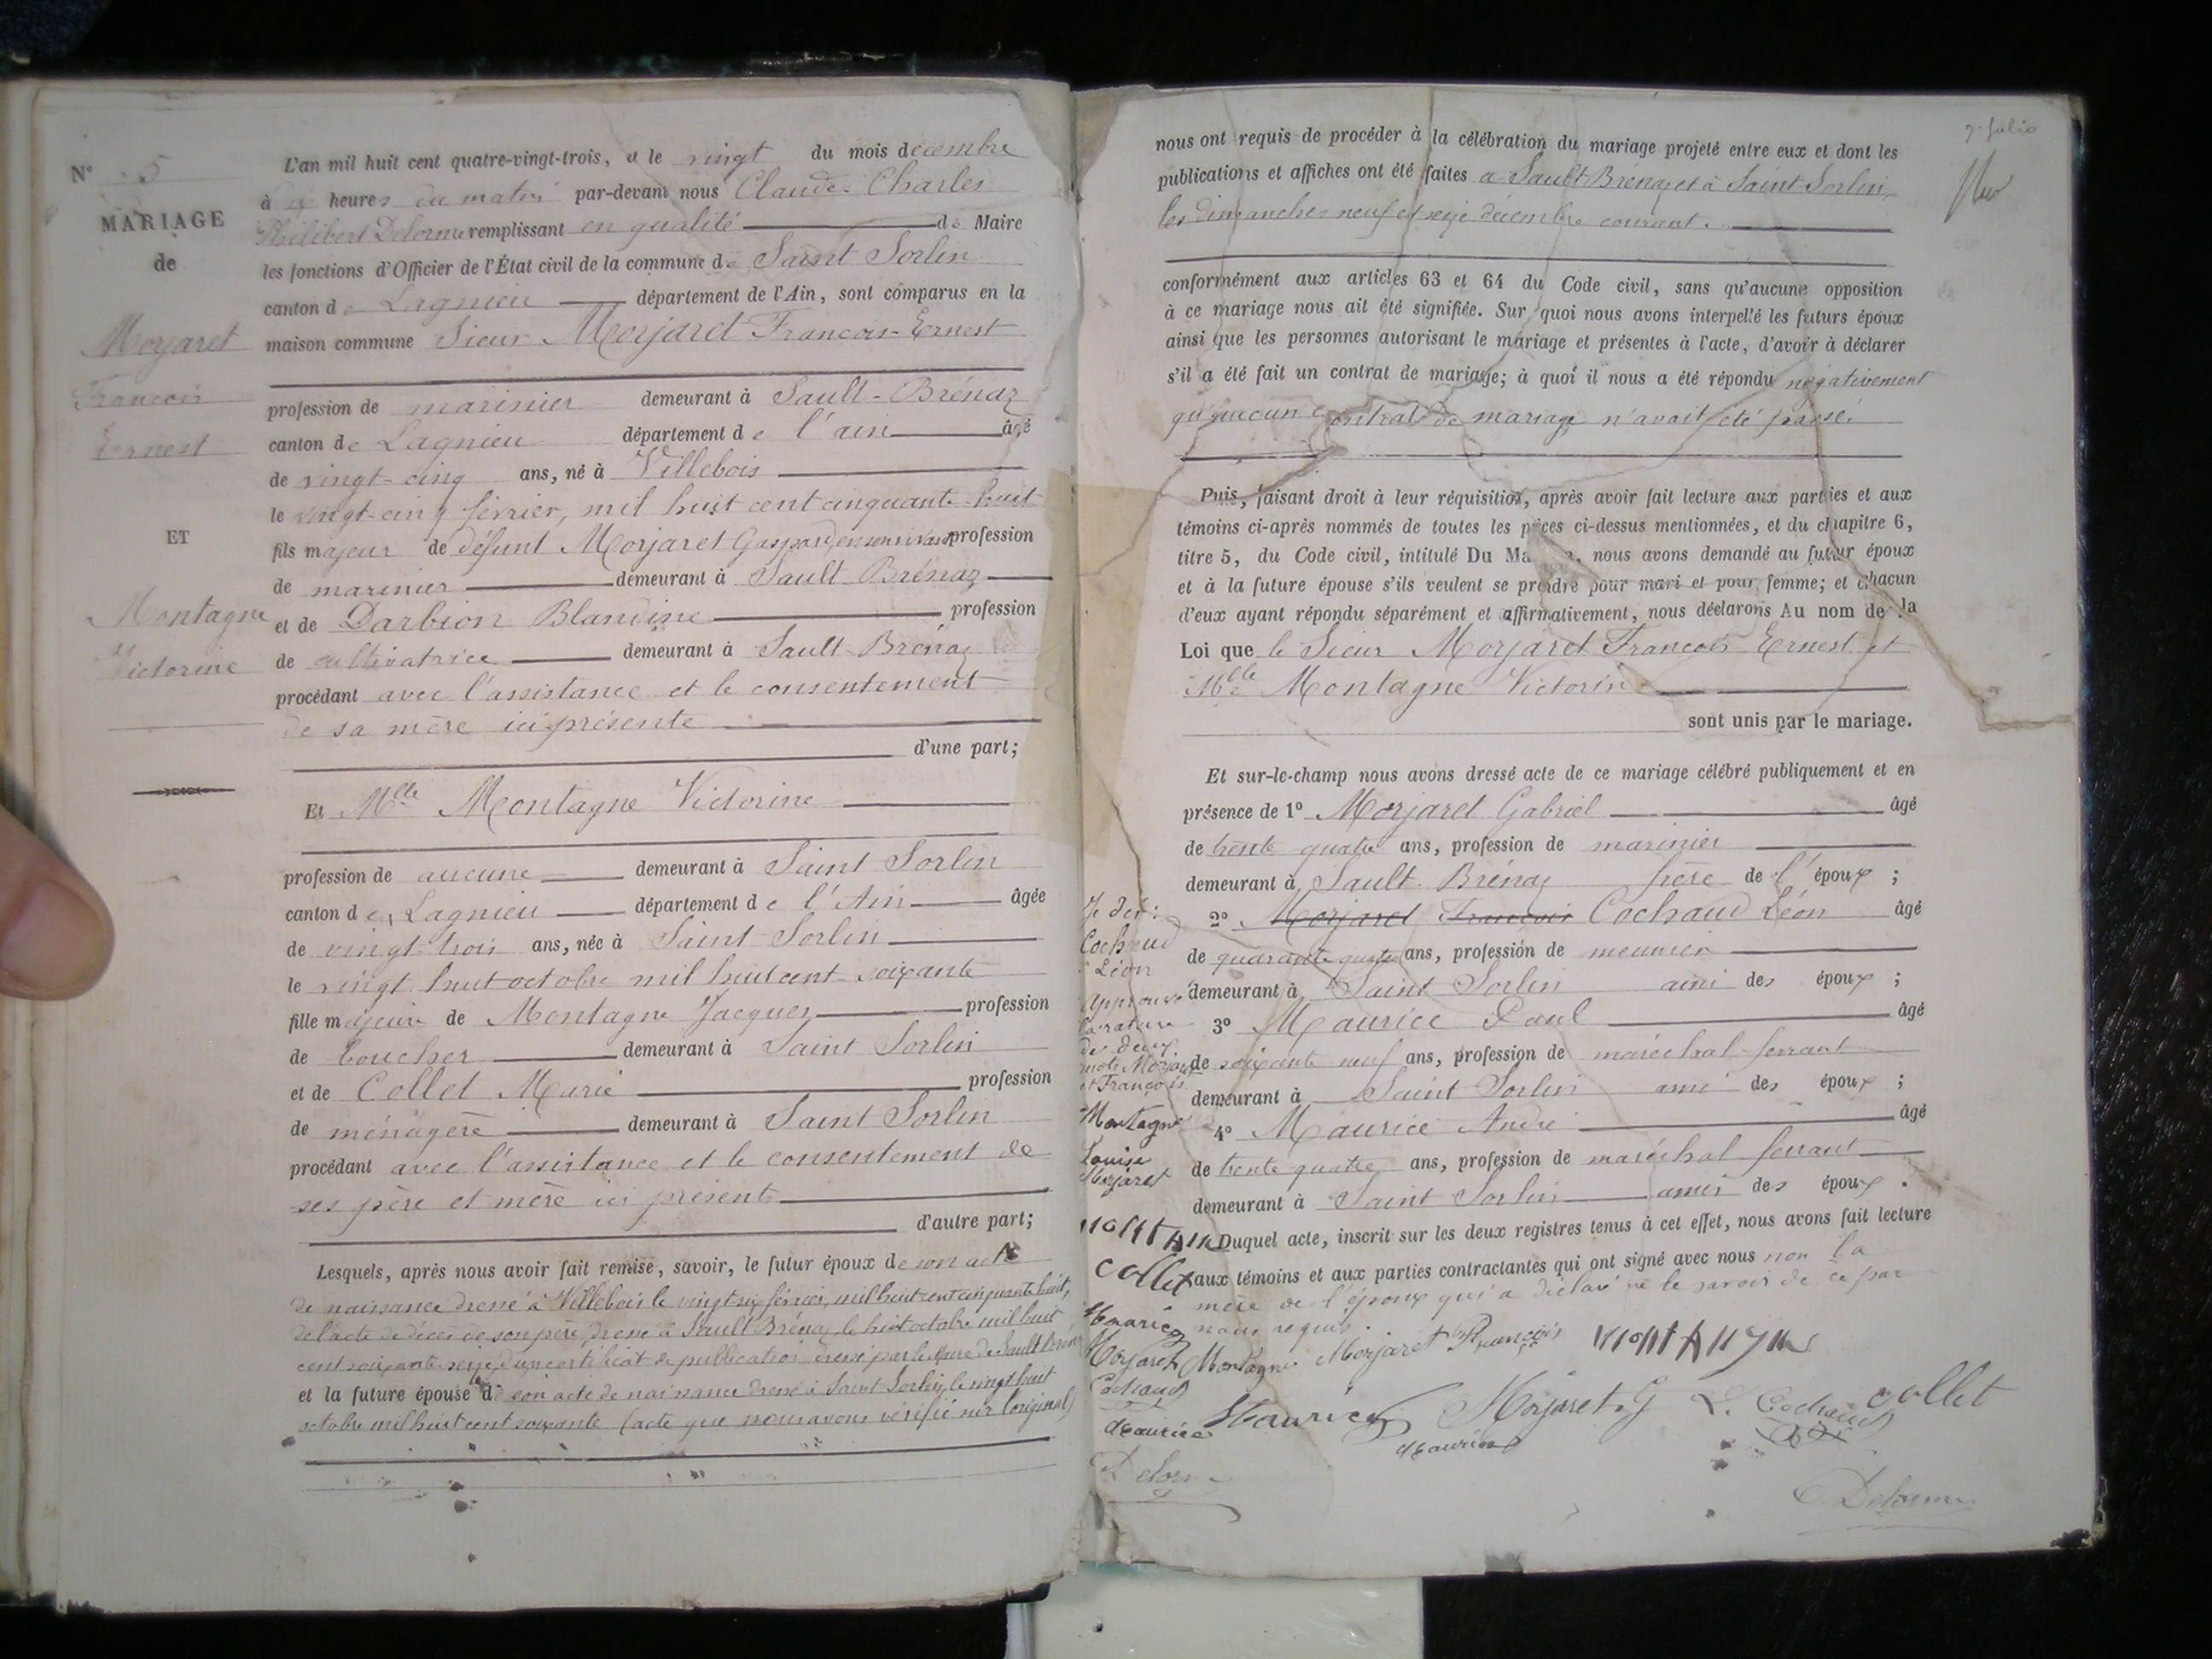 N° 5
MARIAGE
de
Morjaret
François
Ernest
ET
Montagne
Victorine
L'an mil huit cent quatre-vingt-trois, et le vingt du mois décembre
à dix heures du matin par-devant nous Claude Charles
Philibert Delorme remplissant en qualité de Maire
les fonctions d'Officier de l'État civil de la commune de Saint Sorlin
canton de Lagnieu département de l'Ain, sont comparus en la
maison commune Sieur Morjaret François-Ernest
profession de marinier demeurant à Sault-Brénaz
canton de Lagnieu département de l'ain âgé
de vingt-cinq ans, né à Villebois
le vingt-cinq février, mil huit cent cinquante-huit
fils majeur de défunt Morjaret Gaspard, en son vivant profession
de marinier demeurant à Sault-Brénaz
et de Darbion Blandine profession
de cultivatrice demeurant à Sault-Brénaz
procédant avec l'assistance et le consentement
de sa mère ici présente
d'une part;
Et Mlle Montagne Victorine
profession de aucune demeurant à Saint Sorlin
canton de Lagnieu département de l'Ain âgée
de vingt-trois ans, née à Saint Sorlin
le vingt-huit octobre mil huit cent soixante
fille majeure de Montagne Jacques profession
de boucher demeurant à Saint Sorlin
et de Collet Marie profession
de ménagère demeurant à Saint Sorlin
procédant avec l'assistance et le consentement de
ses père et mère ici présents
d'autre part;
Lesquels, après nous avoir fait remise, savoir, le futur époux de son acte
de naissance dressé à Villebois le vingt six février, mil huit cent cinquante huit,
de l'acte de décès de son père, dressé à Sault-Brénaz, le huit octobre mil huit
cent soixante-seize, d'un certificat de publication dressé par le Maire de Sault Brénaz
et la future épouse de son acte de naissance dressé à Saint Sorlin, le vingt huit
octobre mil huit cent soixante (acte que nous avons vérifié sur l'original)
7e folio
nous ont requis de procéder à la célébration du mariage projeté entre eux et dont les
publications et affiches ont été faites à Sault Brénaz et à Saint Sorlin,
les dimanches neuf et seize décembre courant.
conformément aux articles 63 et 64 du Code civil, sans qu'aucune opposition
à ce mariage nous ait été signifiée. Sur quoi nous avons interpellé les futurs époux
ainsi que les personnes autorisant le mariage et présentes à l'acte, d'avoir à déclarer
s'il a été fait un contrat de mariage; à quoi il nous a été répondu négativement
qu'aucun contrat de mariage n'avait été passé.
Puis, faisant droit à leur réquisition, après avoir fait lecture aux parties et aux
témoins ci-après nommés de toutes les pièces ci-dessus mentionnées, et du chapitre 6,
titre 5, du Code civil, intitulé Du Ma, nous avons demandé au futur époux
et à la future épouse s'ils veulent se prendre pour mari et pour femme; et chacun
d'eux ayant répondu séparément et affirmativement, nous déclarons Au nom de la
Loi que le Sieur Morjaret François Ernest et
Mlle Montagne Victorine
sont unis par le mariage.
Et sur-le-champ nous avons dressé acte de ce mariage célébré publiquement et en
présence de 1° Morjaret Gabriel âgé
de trente quatre ans, profession de marinier
demeurant à Sault-Brénaz frère de l'époux ;
2° Morjaret François Cochaud Léon âgé
de quarante quatre ans, profession de meunier
demeurant à Saint Sorlin ami des époux ;
3° Maurice Paul âgé
de soixante neuf ans, profession de maréchal-ferrant
demeurant à Saint Sorlin ami des époux ;
4° Maurice André âgé
de trente quatre ans, profession de maréchal ferrant
demeurant à Saint Sorlin ami des époux .
Duquel acte, inscrit sur les deux registres tenus à cet effet, nous avons fait lecture
aux témoins et aux parties contractantes qui ont signé avec nous non la
mère de l'époux qui a déclaré ne le savoir de ce par
nous requis.
Je dis :
Cochaud
Léon
Approuvé
la rature
des deux
mots Morjaret
et François
Montagne
Louise
Morjaret
Montagne
Collet
Maurice
Morjaret
Cochaud
Maurice
Delorme
Montagne Morjaret François Montagne
Maurice Morjaret G L. Cochaud Collet
Maurice
Delorme